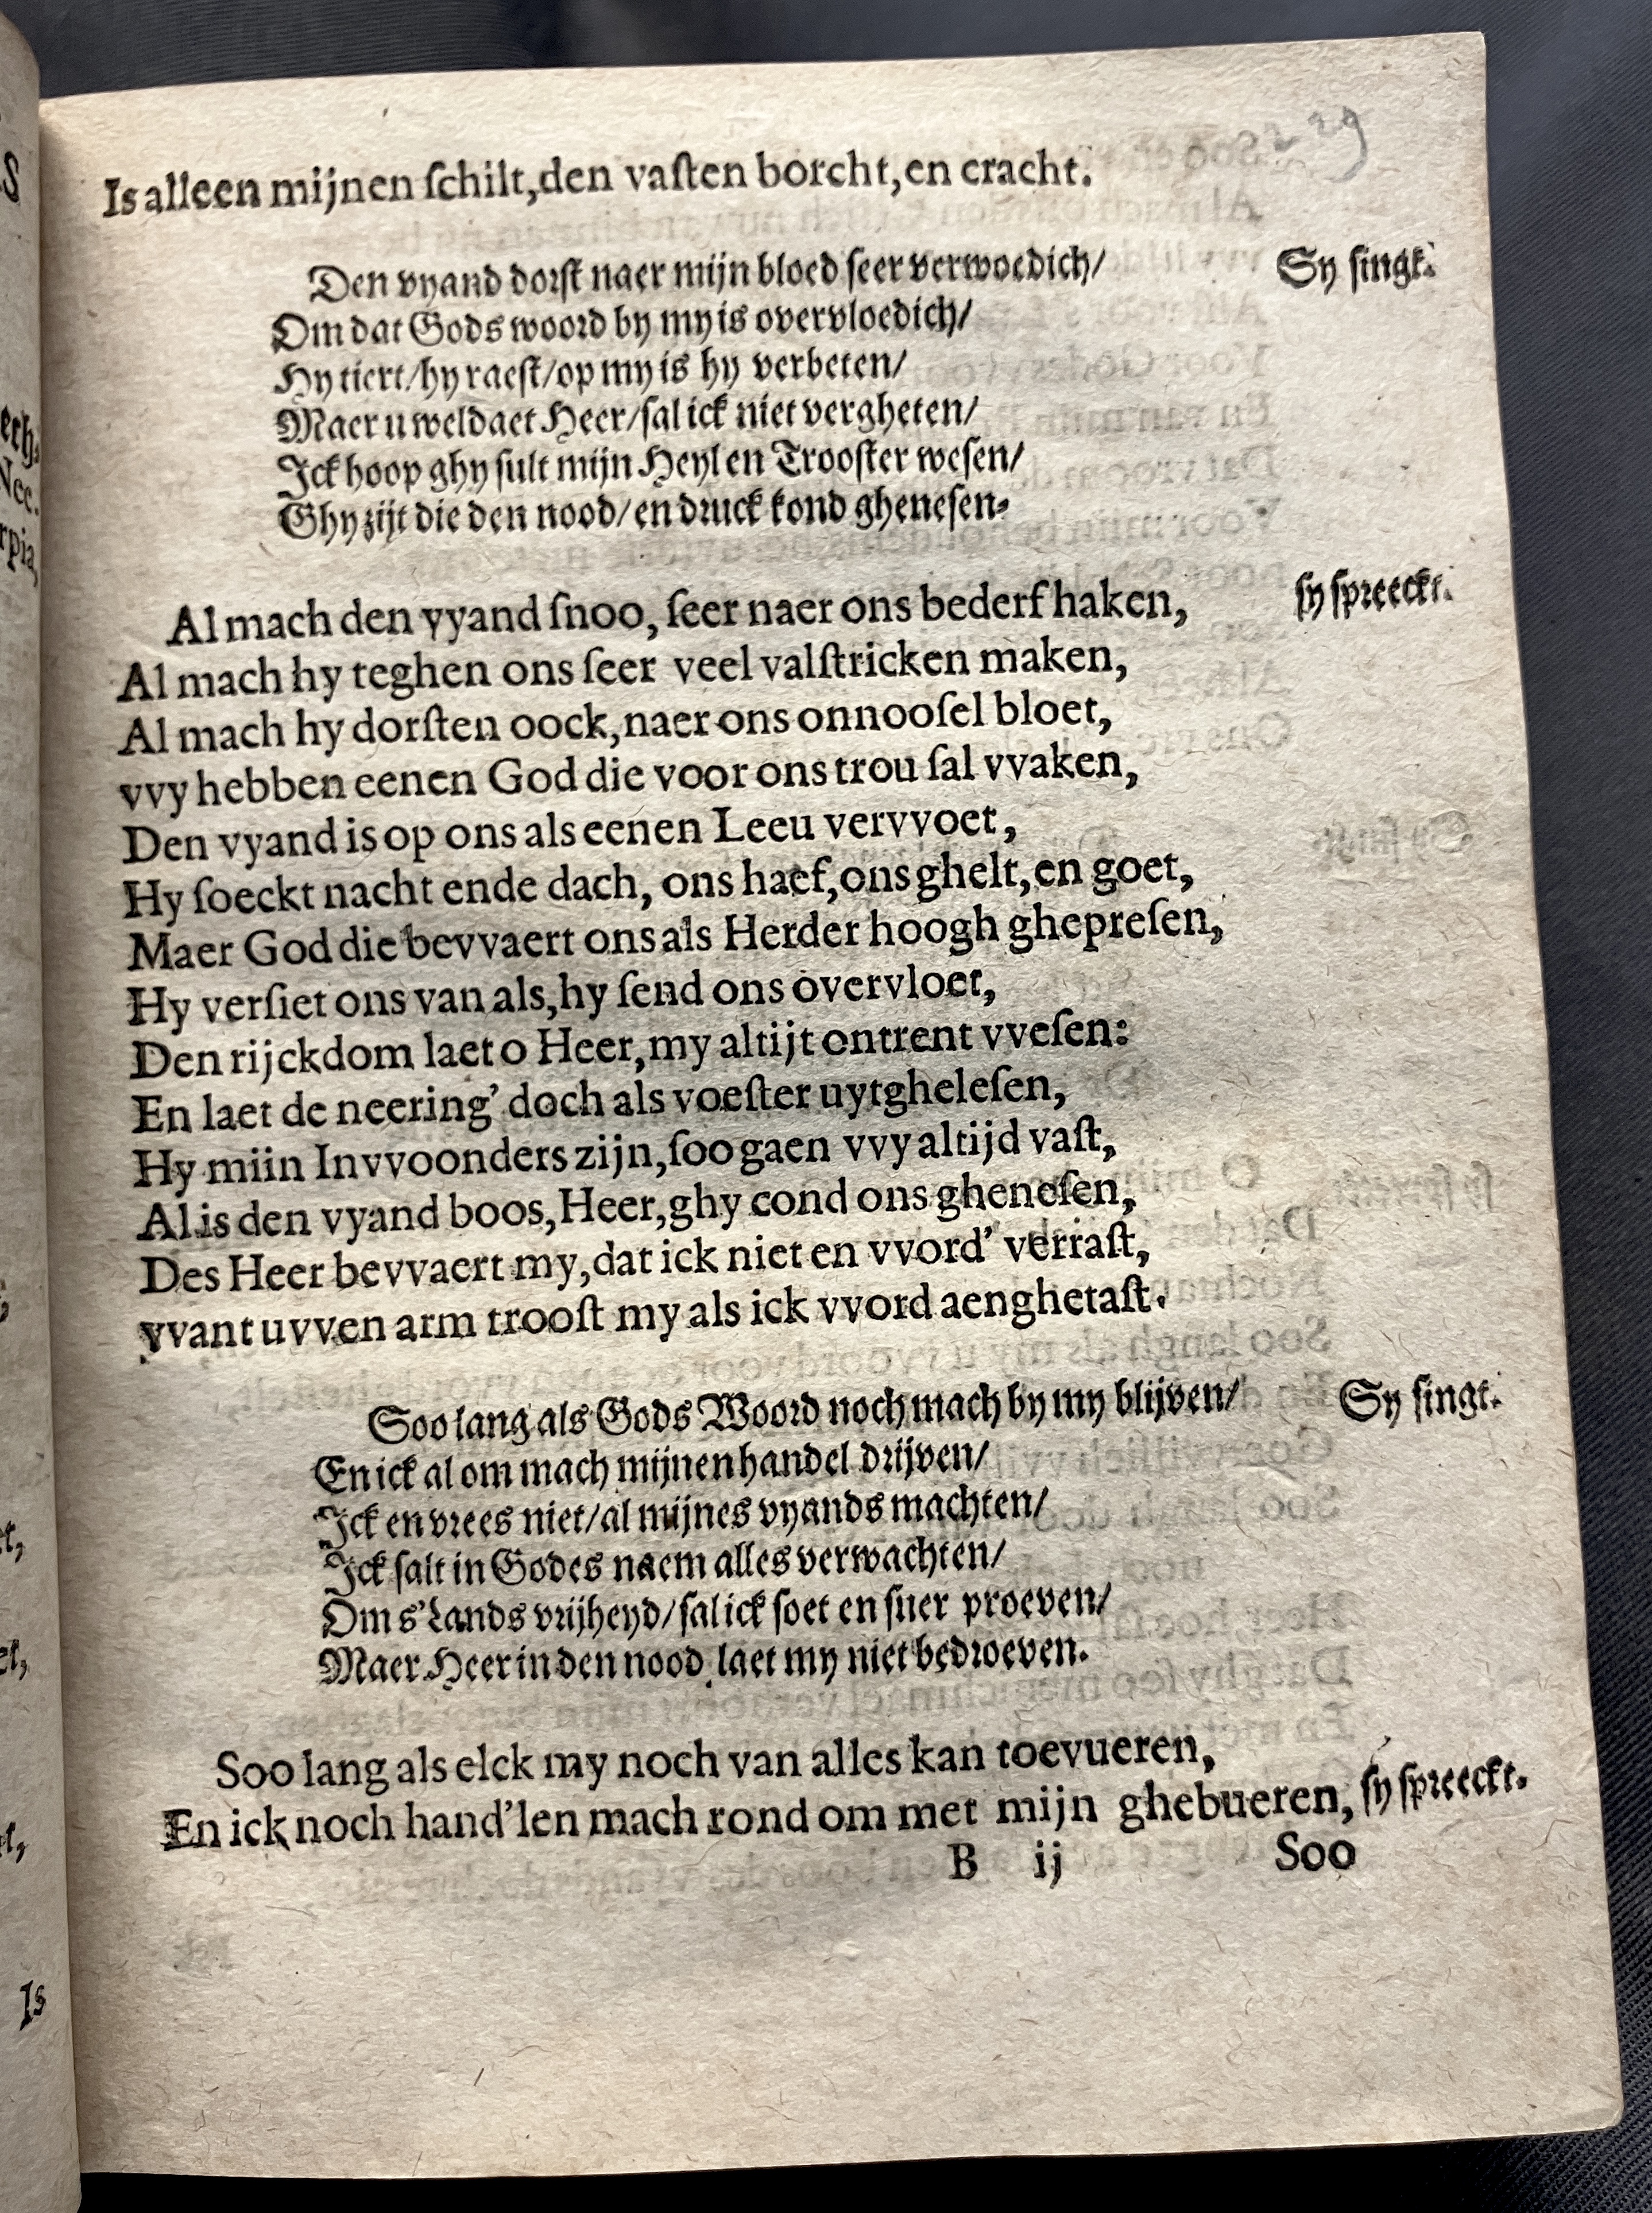 29
Is alleen mijnen ſchilt, den vaſten borcht, en cracht.
Den vyand dorſt naer mijn bloed ſeer verwoedich/ Sy ſingt.
Om dat Gods woord by my is overvloedich/
Hy tiert/hy raeſt/op my is hy verbeten/
Maer u weldaet Heer/ſal ick niet vergheten/
Ick hoop ghy ſult mijn Heyl en Trooſter weſen/
Ghy zijt die den nood/en druck kond gheneſen.
Al mach den vyand ſnoo, ſeer naer ons bederf haken, ſy ſpreeckt.
Al mach hy teghen ons ſeer veel valſtricken maken,
Al mach hy dorſten oock, naer ons onnooſel bloet,
vvy hebben eenen God die voor ons trou ſal vvaken,
Den vyand is op ons als eenen Leeu vervvoet,
Hy ſoeckt nacht ende dach, ons haef, ons ghelt, en goet,
Maer God die bevvaert ons als Herder hoogh ghepreſen,
Hy verſiet ons van als, hy ſend ons overvloet,
Den rijckdom laet o Heer, my altijt ontrent vveſen:
En laet de neering' doch als voeſter uytgheleſen,
Hy miin Invvoonders zijn, ſoo gaen vvy altijd vaſt,
Al is den vyand boos, Heer, ghy cond ons gheneſen,
Des Heer bevvaert my, dat ick niet en vvord' verraſt,
vvant uvven arm trooſt my als ick vvord aenghetaſt.
Soo lang als Gods Woord noch mach by my blijven/ Sy ſingt.
En ick al om mach mijnen handel drijven/
Ick en vrees niet/al mijnes vyands machten/
Ick ſalt in Godes naem alles verwachten/
Om s'Lands vrijheyd/ſal ick ſoet en ſuer proeven/
Maer Heer in den nood laet my niet bedroeven.
Soo lang als elck my noch van alles kan toevueren,
En ick noch hand'len mach rond om met mijn ghebueren, ſy ſpreeckt.
B ij Soo